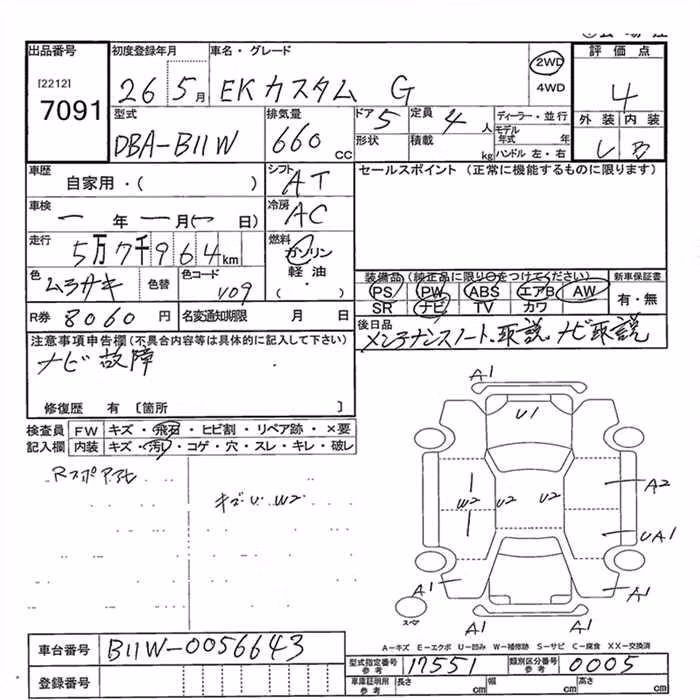 出品番号 初度登録年月 車名・グレード 評価点
[2212] 7091 26 5月 EKカスタム G 2WD 4WD 4
型式 排気量 ドア 定員 ディーラー・並行 外装 内装
DBA-B11W 660cc 5 4人 形状 積載 kg モデル年式 年 ハンドル 左・右 B
車歴 シフト セールスポイント (正常に機能するものに限ります)
自家用・( ) AT
車検 冷房
一年一月(一日) AC
走行 燃料
5万7千964km ガソリン 軽油 ・( )
装備品(純正品に限り○をつけてください) 新車保証書
色 ムラサキ 色替 色コード
PS PW ABS エアB AW 有・無
SR ナビ TV カワ
R券 8060円 名変通知期限 月 日
後日品 メンテナンスノート、取説、ナビ取説
注意事項申告欄(不具合内容等は具体的に記入して下さい)
ナビ故障
修復歴 有 〔箇所 〕
検査員 FW キズ・飛石・ヒビ割・リペア跡・×要
記入欄 内装 キズ・汚れ・コゲ・穴・スレ・キレ・破レ
キズU W2
A1
U1
W2 U2 U2 A2
UA1
A1 A1
A1 A1
スペア
A−キズ E−エクボ U−凹み W−補修跡 S−サビ C−腐食 XX−交換済
車台番号 B11W-0056643
型式指定番号 参考 17551 類別区分番号 参考 0005
登録番号 車庫証明用 参考 長さ cm 幅 cm 高さ cm